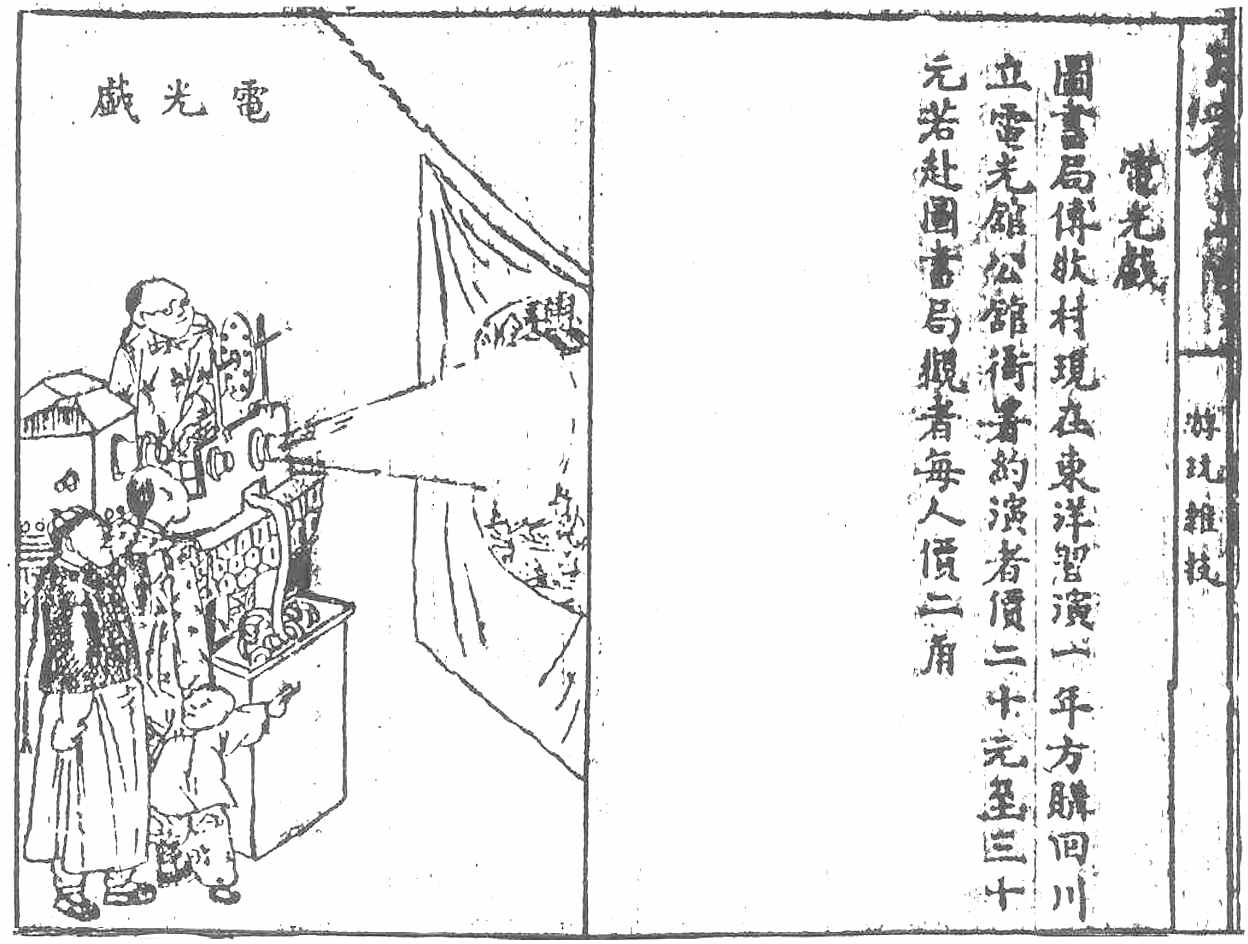 游玩雜技
電光戲
圖書局傅牧村現在東洋習演一年方購回川
立電光館公館衙署約演者價二十元至三十
元若赴圖書局觀者每人價二角
電光戲